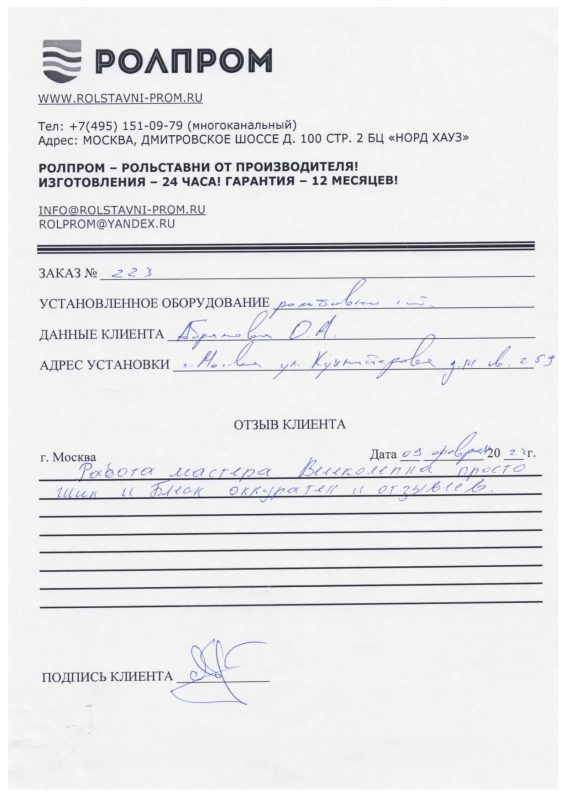 РОЛПРОМ
WWW.ROLSTAVNI-PROM.RU
Тел: +7(495) 151-09-79 (многоканальный)
Адрес: МОСКВА, ДМИТРОВСКОЕ ШОССЕ Д. 100 СТР. 2 БЦ «НОРД ХАУЗ»
РОЛПРОМ – РОЛЬСТАВНИ ОТ ПРОИЗВОДИТЕЛЯ!
ИЗГОТОВЛЕНИЯ – 24 ЧАСА! ГАРАНТИЯ – 12 МЕСЯЦЕВ!
INFO@ROLSTAVNI-PROM.RU
ROLPROM@YANDEX.RU
ЗАКАЗ № 223
УСТАНОВЛЕННОЕ ОБОРУДОВАНИЕ рольставни 1 шт.
ДАННЫЕ КЛИЕНТА О.А.
АДРЕС УСТАНОВКИ г. Москва ул.
ОТЗЫВ КЛИЕНТА
г. Москва Дата 09 февраля 20 г.
Работа мастера Великолепна просто
шик и блеск аккуратен и отзывчев.
ПОДПИСЬ КЛИЕНТА